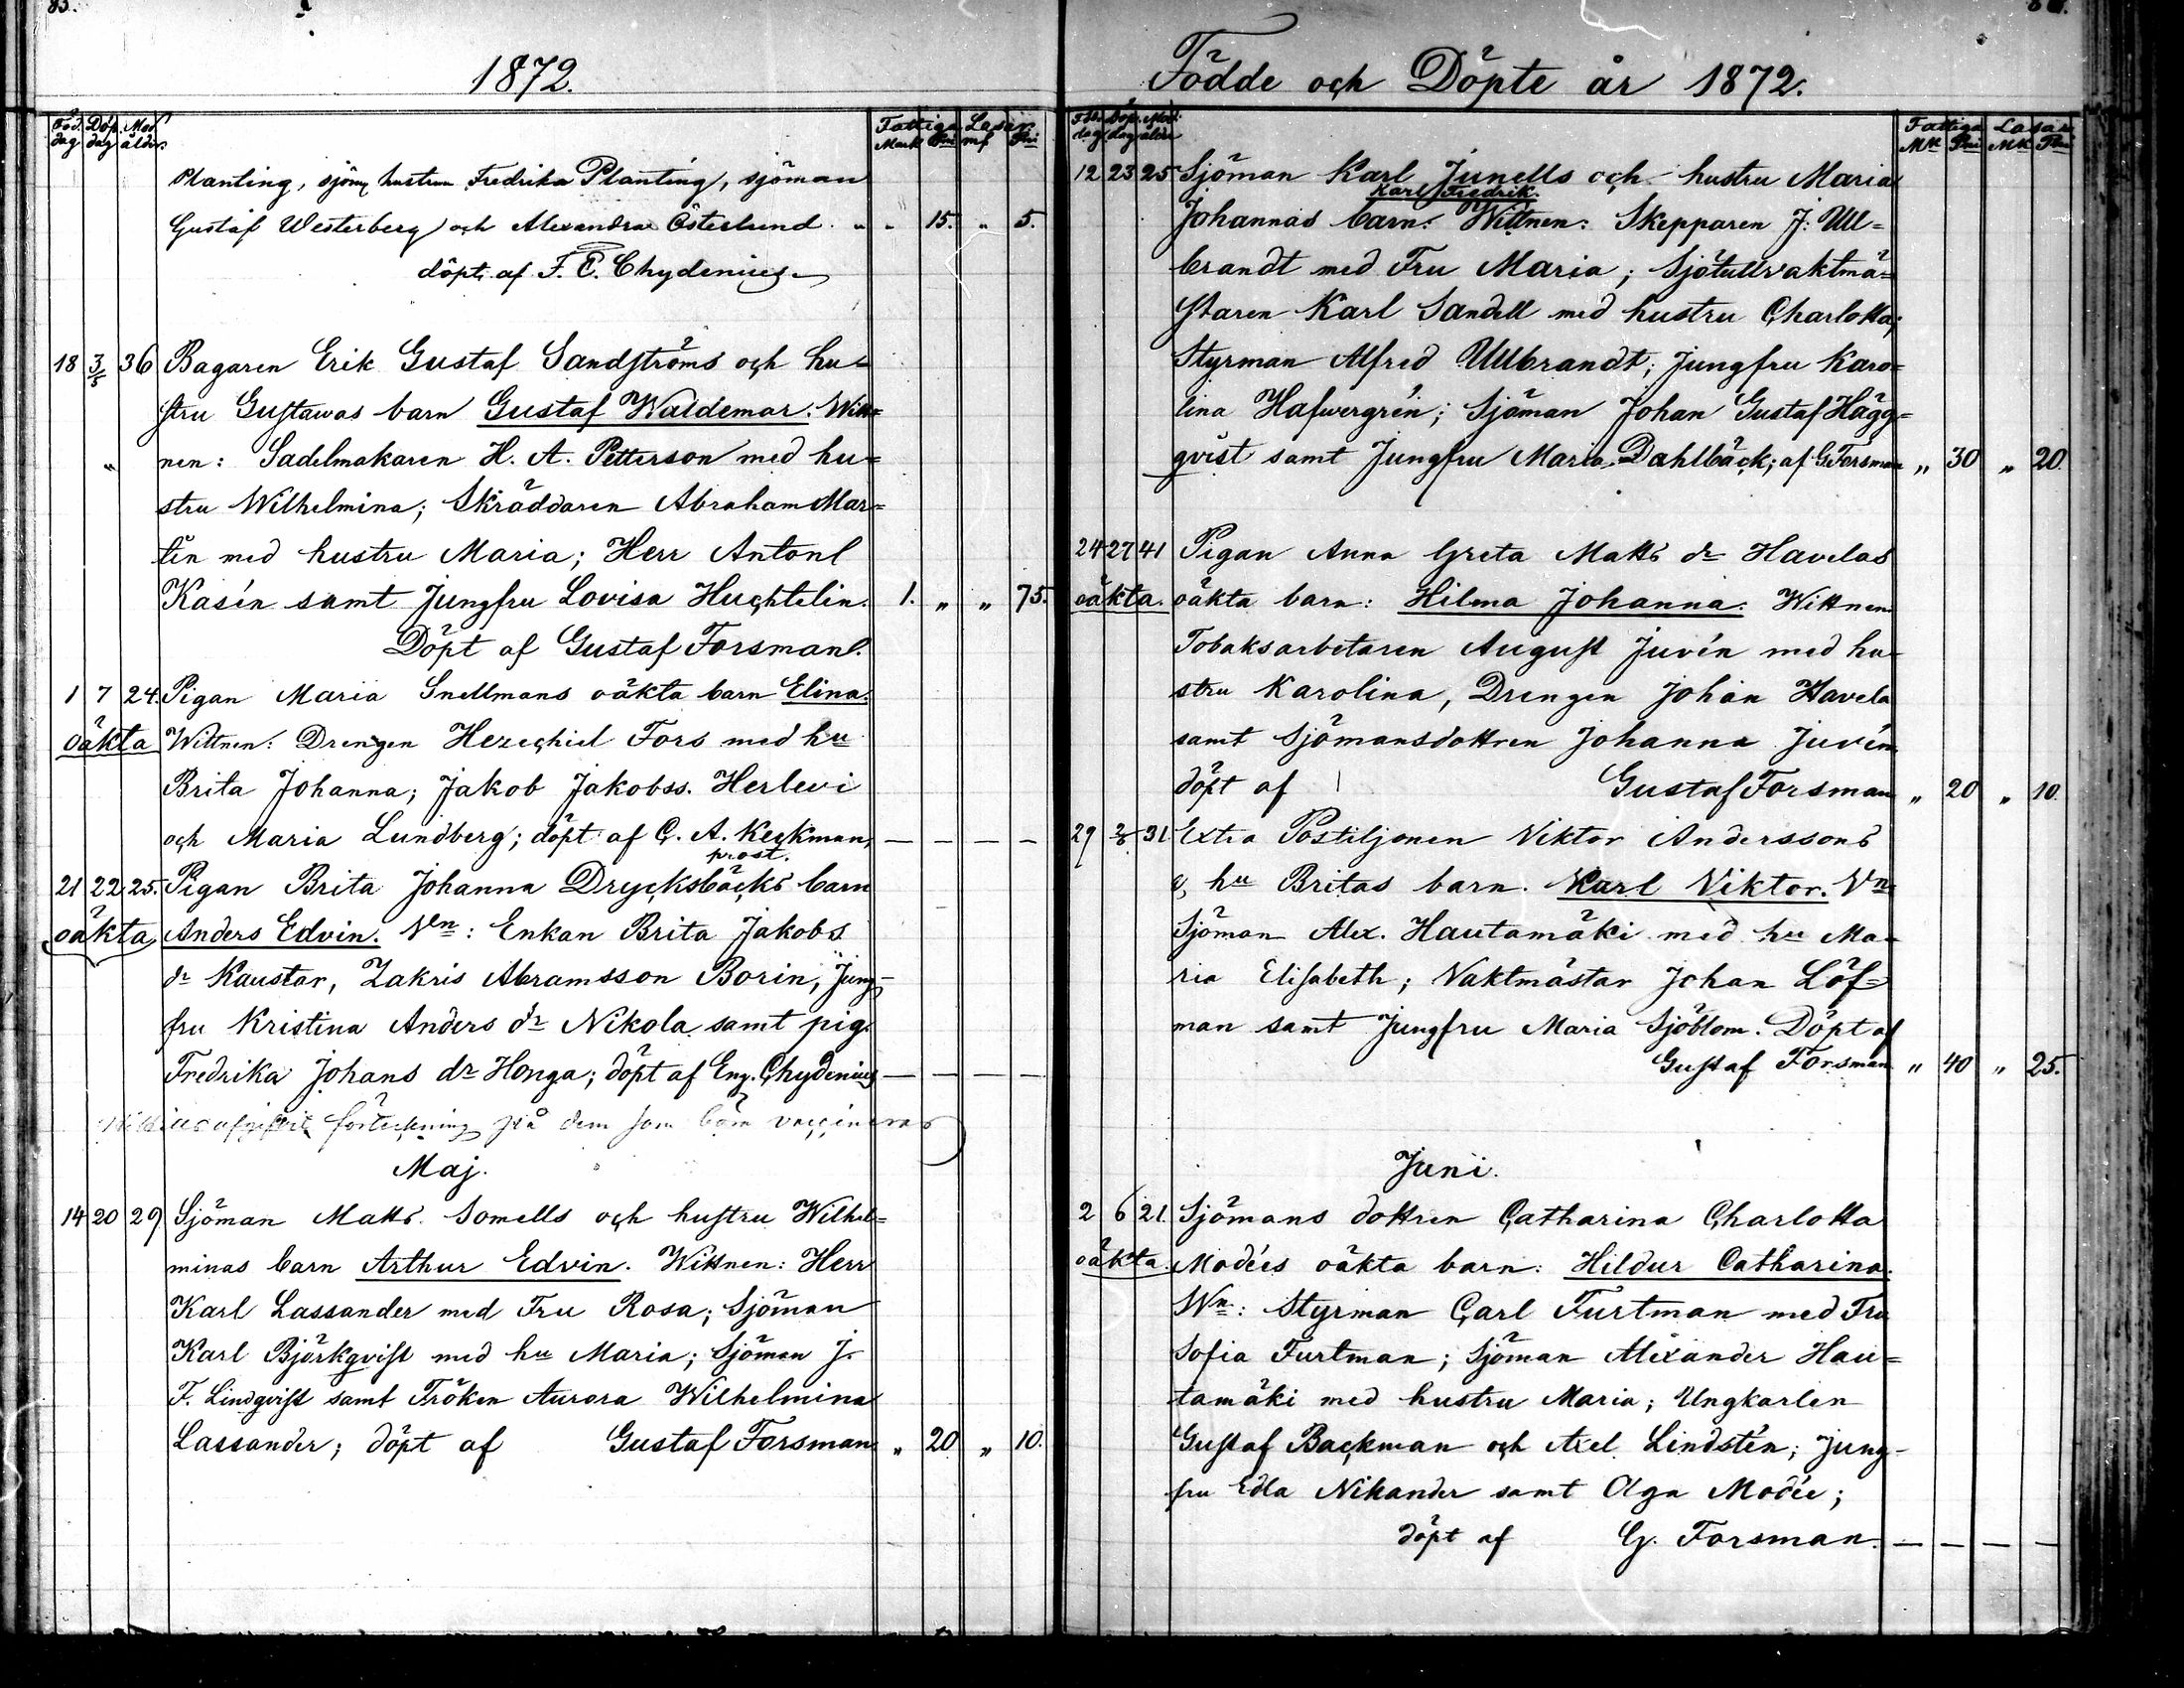 85.
1872.
Föd. dag Döp. dag Mod. ålder. Fattiga Mark Pni Lasar. mk Pni
Planting, sjöm. hustrun Fredrika Planting, sjöman
Gustaf Westerberg och Alexandra Österlund. " " 15. " 5.
döpt. af F. E. Chydenius
18 3/5 36 Bagaren Erik Gustaf Sandströms och hu-
stru Gustawas barn Gustaf Waldemar. Witt-
" nen: Sadelmakaren H. A. Petterson med hu-
stru Wilhelmina; Skräddaren Abraham Mar-
tin med hustru Maria; Herr Anton
Kasén samt Jungfru Lovisa Huchtelin. 1. " " 75.
Döpt af Gustaf Forsman.
1 7 24. Pigan Maria Snellmans oäkta barn Elina.
oäkta Wittnen: Drengen Hezechiel Fors med hu
Brita Johanna; Jakob Jakobss. Herlevi
och Maria Lundberg; döpt af C. A. Keckman, — — — —
prost.
21 22 25. Pigan Brita Johanna Drycksbäcks barn
oäkta Anders Edvin. Vn: Enkan Brita Jakobs
dr Kaustar, Zakris Abramsson Borin, Jung-
fru Kristina Anders dr Nikola samt pig.
Fredrika Johans dr Honga; döpt af Eng. Chydenius — — — —
förteckning på dem som böra vaccineras
Maj.
14 20 29 Sjöman Matts Somells och hustru Wilhel-
minas barn Arthur Edvin. Wittnen: Herr
Karl Lassander med Fru Rosa; Sjöman
Karl Björkqvist med hu Maria; Sjöman J.
F. Lindqvist samt Fröken Aurora Wilhelmina
Lassander; döpt af Gustaf Forsman " 20 " 10.
Födde och Döpte år 1872.
Föd. dag Döp. dag Mod. ålder Fattiga Mk Pni Lasar. Mk Pni
12 23 25 Sjöman Karl Junells och hustru Maria
Karl Fredrik.
Johannas barn. Wittnen: Skepparen J. Ull-
brandt med Fru Maria; Sjötullvaktmä-
staren Karl Sandell med hustru Charlotta;
Styrman Alfred Ullbrandt; Jungfru Karo-
lina Hafwergrén; Sjöman Johan Gustaf Hägg-
qvist samt Jungfru Maria Dahlbäck; af G Forsman " 30 " 20.
24 27 41 Pigan Anna Greta Matts dr Havelas
oäkta. oäkta barn: Hilma Johanna. Wittnen
Tobaksarbetaren August Juvén med hu-
stru Karolina, Drengen Johan Havela
samt Sjömansdottren Johanna Juvén
döpt af Gustaf Forsman " 20 " 10.
29 2/6 31. Extra Postiljonen Viktor Anderssons
o, hu Britas barn. Karl Viktor. Vn
Sjöman Alex. Hautamäki med hu Ma-
ria Elisabeth; Vaktmästar Johan Löf-
man samt Jungfru Maria Sjöblom. Döpt af
Gustaf Forsman " 40 " 25.
Juni.
2 6 21. Sjömans dottren Catharina Charlotta
oäkta. Modées oäkta barn: Hildur Catharina.
Wn: Styrman Carl Furtman med Fru
Sofia Furtman; Sjöman Alexander Hau-
tamäki med hustru Maria; Ungkarlen
Gustaf Backman och Axel Lindstén; Jung-
fru Edla Nikander samt Olga Modée;
döpt af G. Forsman. — — — —